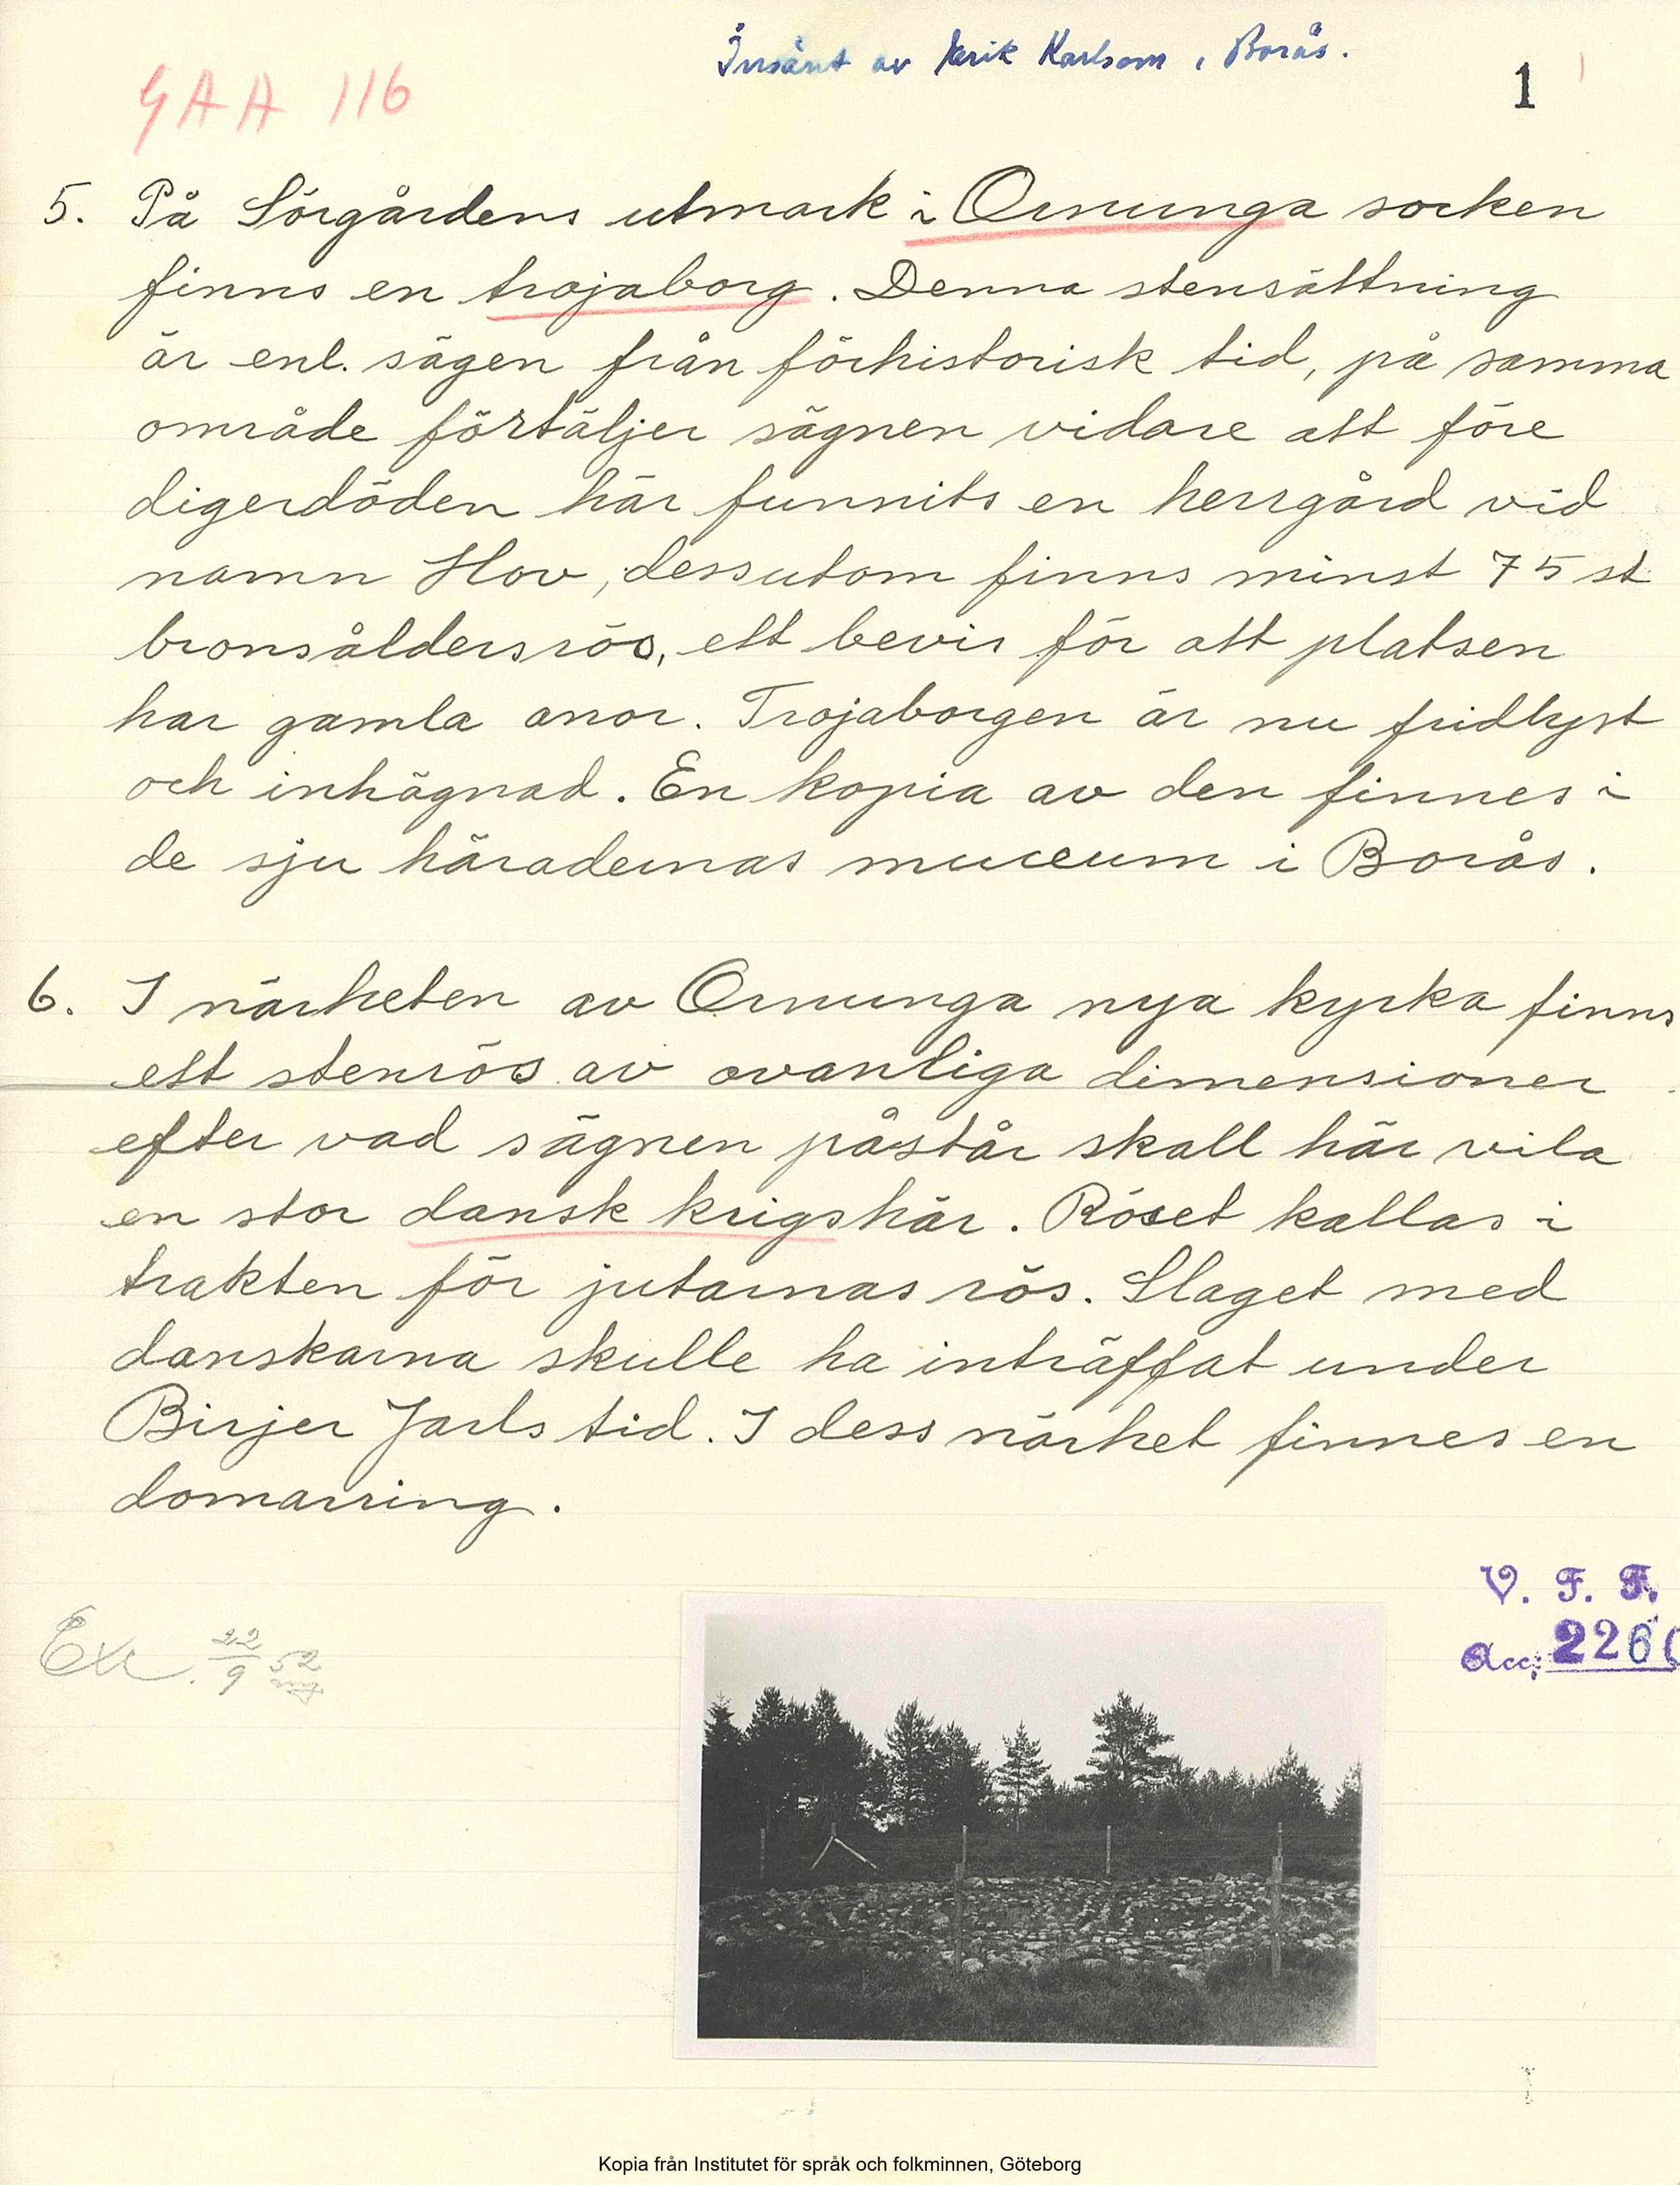 Insänt av Erik Karlsson, Borås.
GAA 116
1
5. På Sörgårdens utmark i Ornunga socken
finns en trojaborg. Denna stensättning
är enl. sägen från förhistorisk tid, på samma
område förtäljer sägnen vidare att före
digerdöden här funnits en herrgård vid
namn Hov, dessutom finns minst 75 st
bronsåldersrös, ett bevis för att platsen
har gamla anor. Trojaborgen är nu fridlyst
och inhägnad. En kopia av den finnes i
de sju häradernas museum i Borås.
6. I närheten av Ornunga nya kyrka finns
ett stenrös av ovanliga dimensioner
efter vad sägnen påstår skall här vila
en stor dansk krigshär. Röset kallas i
trakten för jutarnas rös. Slaget med
danskarna skulle ha inträffat under
Birjer Jarls tid. I dess närhet finnes en
domarring.
V. F. F.
Acc; 226
Ex. 22/9 52
Kopia från Institutet för språk och folkminnen, Göteborg